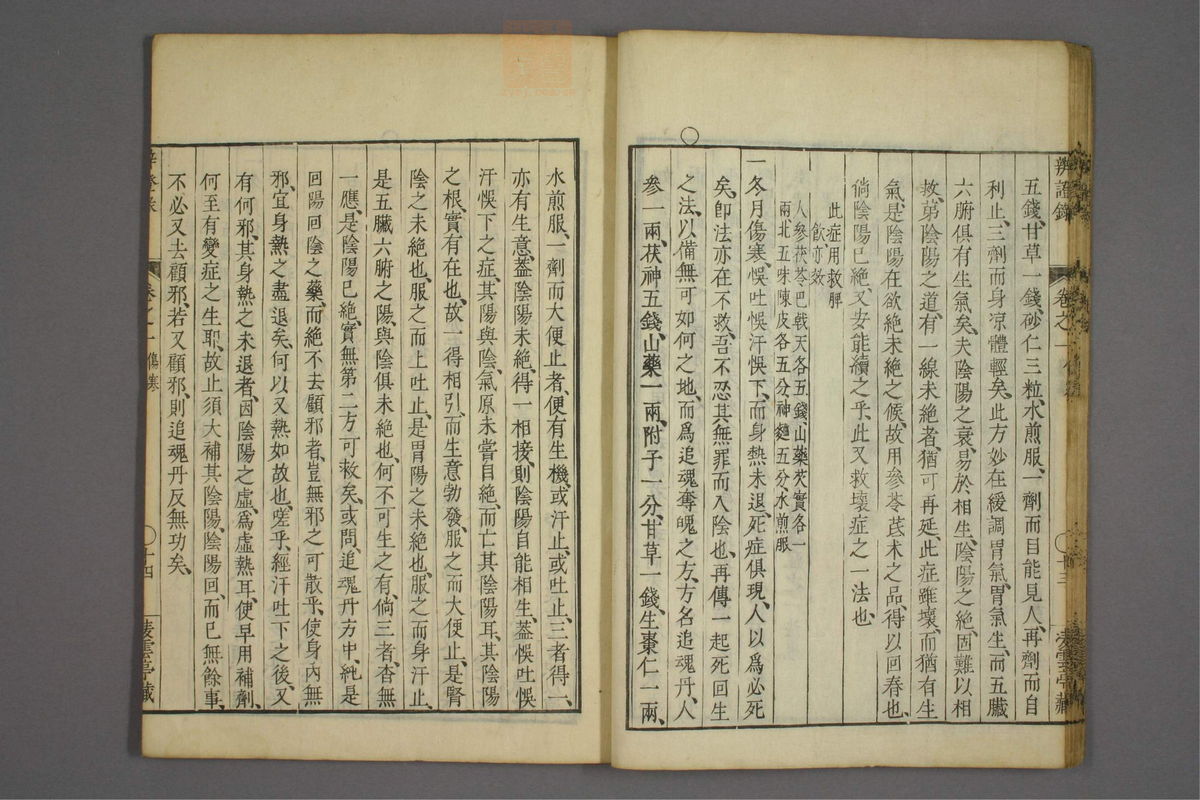 五錢、甘草一錢、砂仁三粒、水煎服、一劑而目能見人、再劑而自
利止、三劑而身凉體輕矣、此方妙在緩調胃氣、胃氣生、而五臟
六腑俱有生氣矣、夫陰陽之衰、易於相生、陰陽之絕、固難以相
救、第陰陽之道、有一線未絕者、猶可再延、此症雖壞、而猶有生
氣、是陰陽在欲絕未絕之候、故用參苓芪术之品、得以回春也、
倘陰陽已絕、又安能續之乎、此又救壞症之一法也、
此症用救脾
飲亦效
人參茯苓巴戟天各五錢、山藥芡實各一
兩北五味陳皮各五分神麯五分水煎服
一冬月傷寒、悞吐悞汗悞下、而身熱未退、死症俱現、人以爲必死
矣、卽法亦在不救、吾不忍其無罪而入陰也、再傳一起死回生
之法、以備無可如何之地、而爲追魂奪魄之方、方名追魂丹、人
參一兩、茯神五錢、山藥一兩、附子一分、甘草一錢、生棗仁一兩、
辨證錄
卷之一
十三
凌雲亭藏
水煎服、一劑而大便止者、便有生機、或汗止、或吐止、三者得一、
亦有生意、蓋陰陽未絕、得一相接、則陰陽自能相生、蓋悞吐悞
汗悞下之症、其陽與陰氣原未嘗自絕、而亡其陰陽耳、其陰陽
之根、實有在也、故一得相引、而生意勃發、服之而大便止、是腎
陰之未絕也、服之而上吐止、是胃陽之未絕也、服之而身汗止、
是五臟六腑之陽與陰俱未絕也、何不可生之有、倘三者杳無
一應、是陰陽已絕、實無第二方可救矣、或問、追魂丹方中、純是
回陽回陰之藥、而絕不去顧邪者、豈無邪之可散乎、使身內無
邪、宜身熱之盡退矣、何以又熱如故也、嗟乎、經汗吐下之後、又
有何邪、其身熱之未退者、因陰陽之虛、爲虛熱耳、使早用補劑、
何至有變症之生耶、故止須大補其陰陽、陰陽回、而已無餘事、
不必又去顧邪、若又顧邪、則追魂丹反無功矣、
卷之一
傷寒
十四
凌雲亭藏